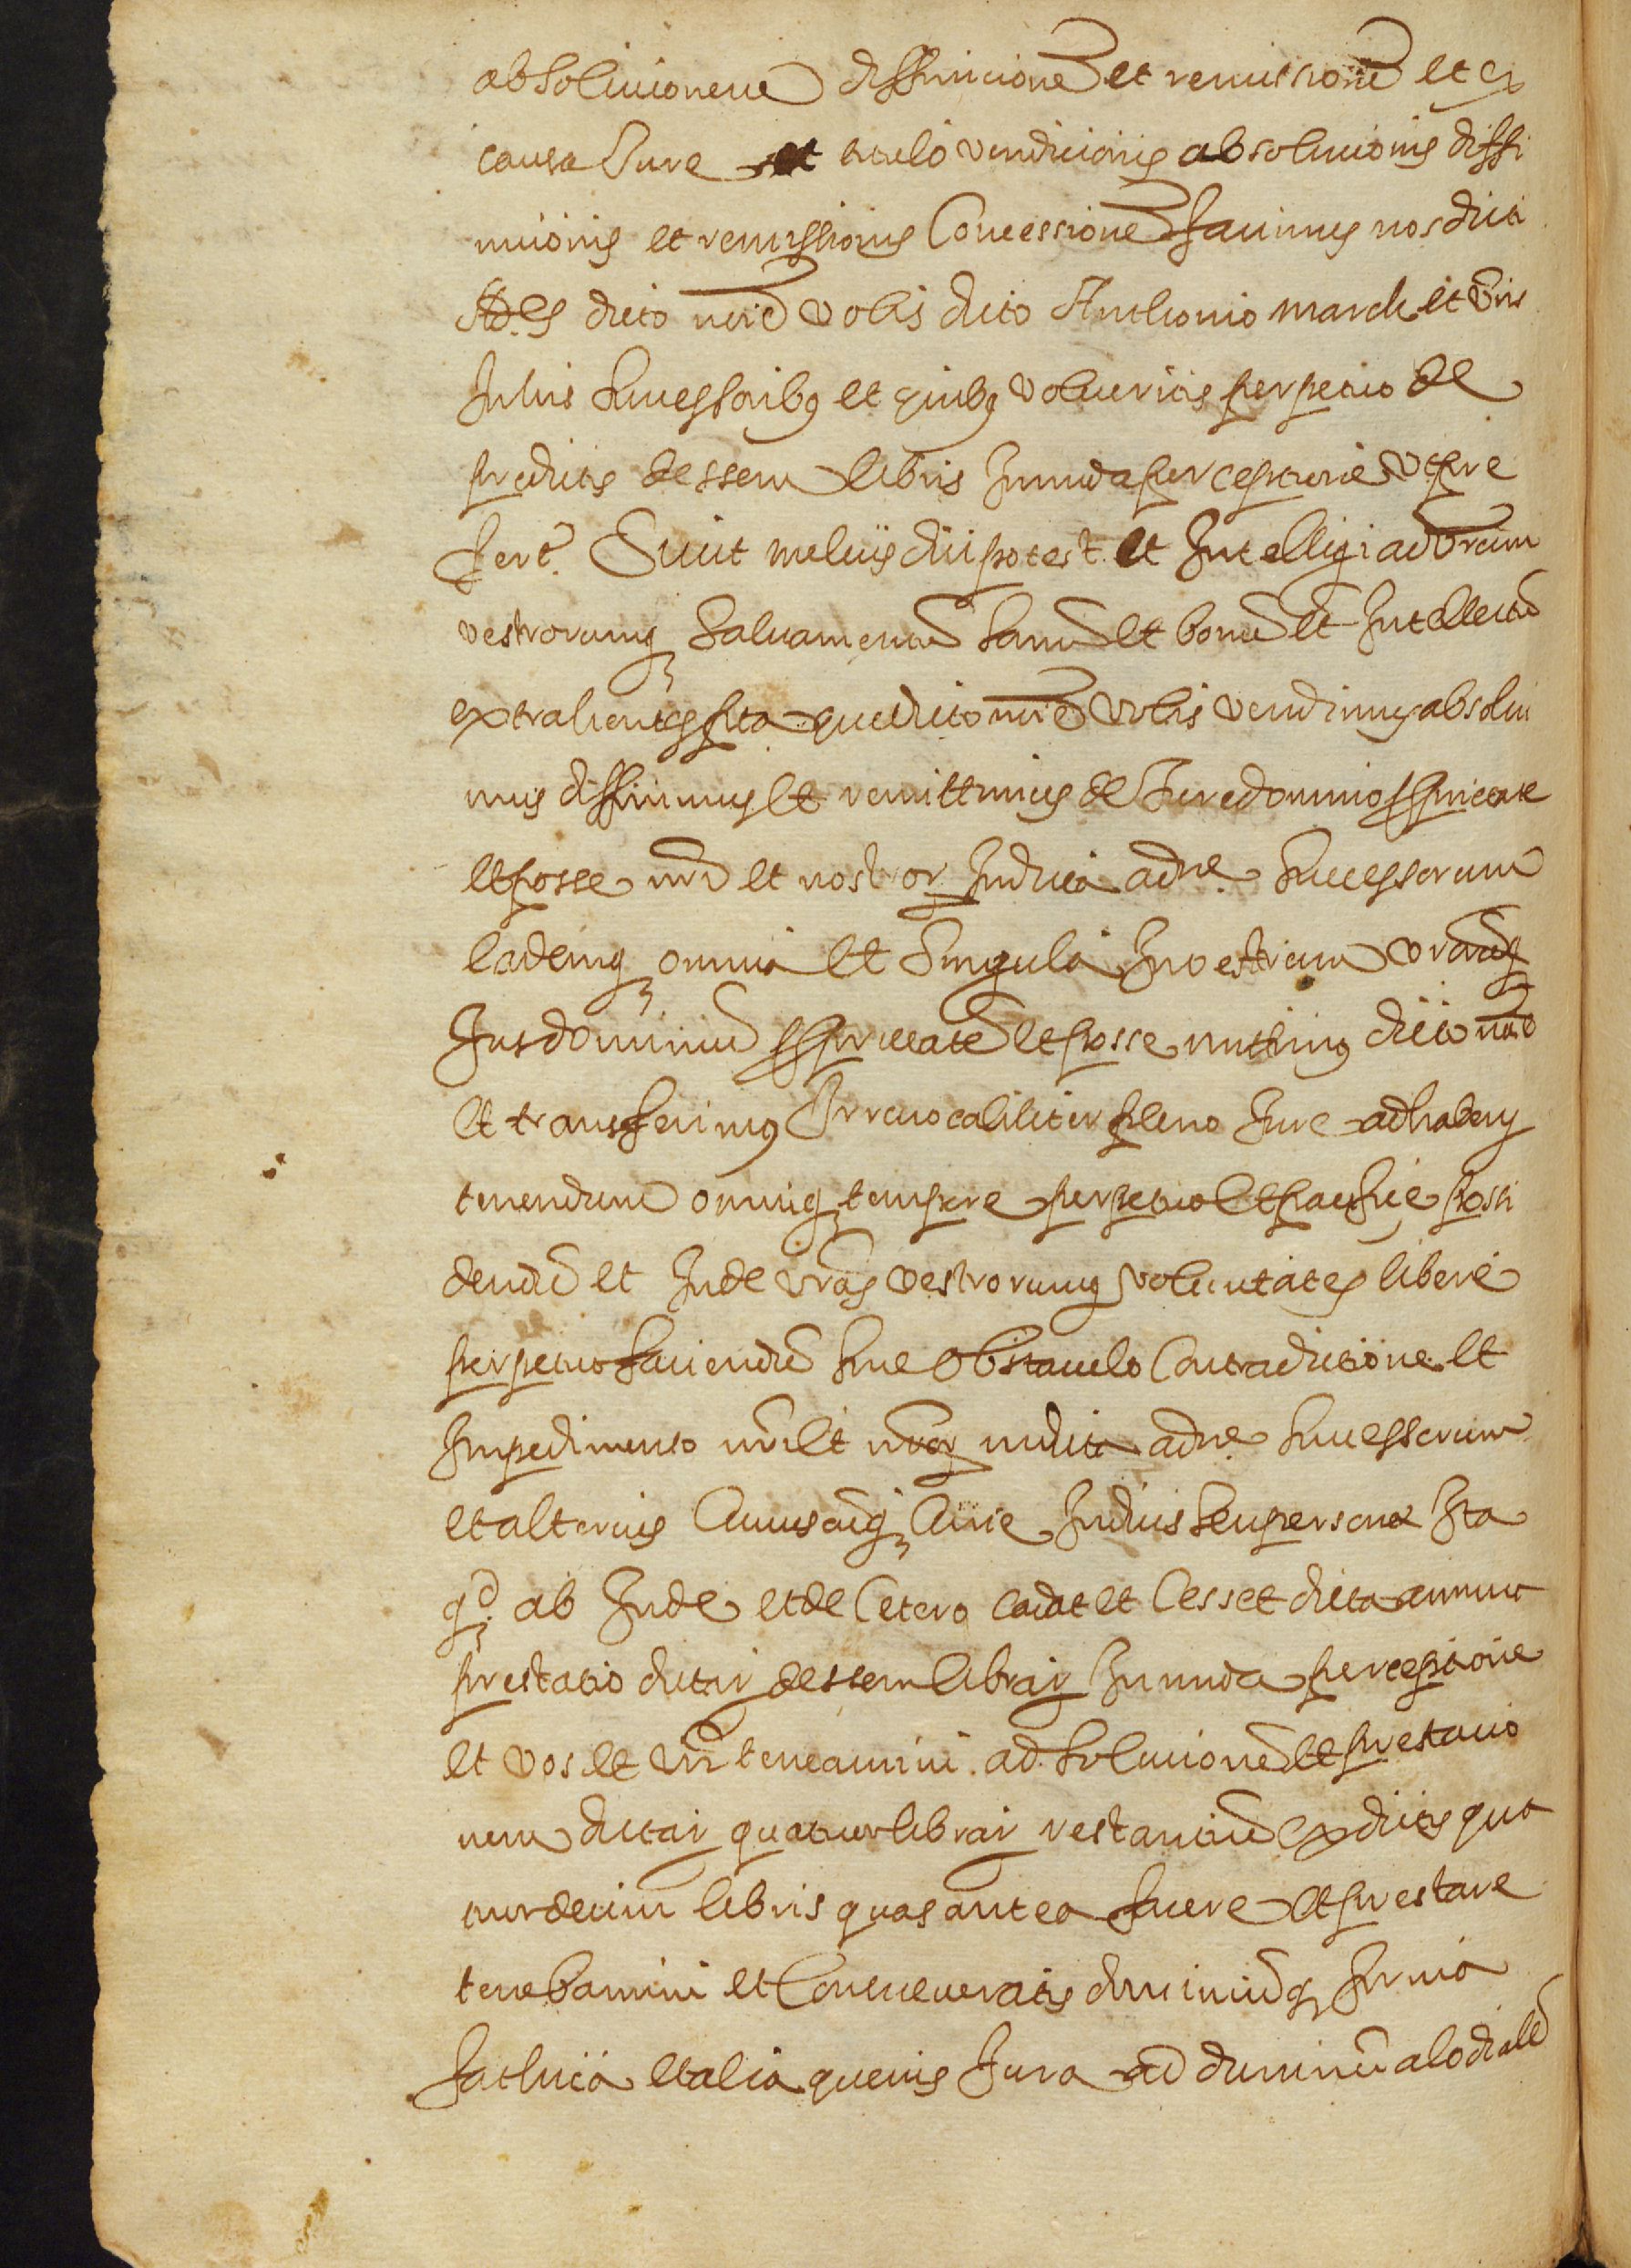 absolucionem diffinicione et remissione et ex
causa Jure et titulo vendicionis absolucionis diffi
nicionis et remissionis Concessione facimus nos dicti
dicto nõie vobis dicto Anthonio march et vris
In his Successoribus et quibus volueritis perpetuo de
predictis dessem libris In nuda perceptione ut pre
fert. Sicut melius dici potest et Intelligi ad vrum
vestrorumq Salvamentu Sanu et bonu et Intellectu
extrahentes Ita que dicto nõie vobis vendimus absolvi
mus diffinimus et remittimus de Jure dominio pprietate
et posse nro et nostror Indicta adne. Successorum
Eademq omnia et Singula In vestrum vrorumq
Jus dominiu pprietate et posse mittimus dicto nõie
Et transferimus Irrevocabiliter pleno Jure ad habend
tenendum omniq tempore perpetuo et pacifice possi
dendu et Inde vras vestrorumq voluntates libere
perpetuo faciendu Sine Obstaculo Contradictione et
Impedimento nri et nror indicta adne. Successorum
et alterius Cuiuscuq Curie Judicis Seu persone Ita
qd. ab Inde et de Cetero cadat et Cesset dicta annua
prestatio dictar dessem librar In nuda perceptione
et vos et vri teneamini ad Solucione et prestatio
nem dictar quatuor librar restantiu ex dictis qua
tuordecim libris quas antea facere et prestare
tenebamini et Conveneratis dominiuq firma
fathica et alia quevis Jura ad dominiu alodiale